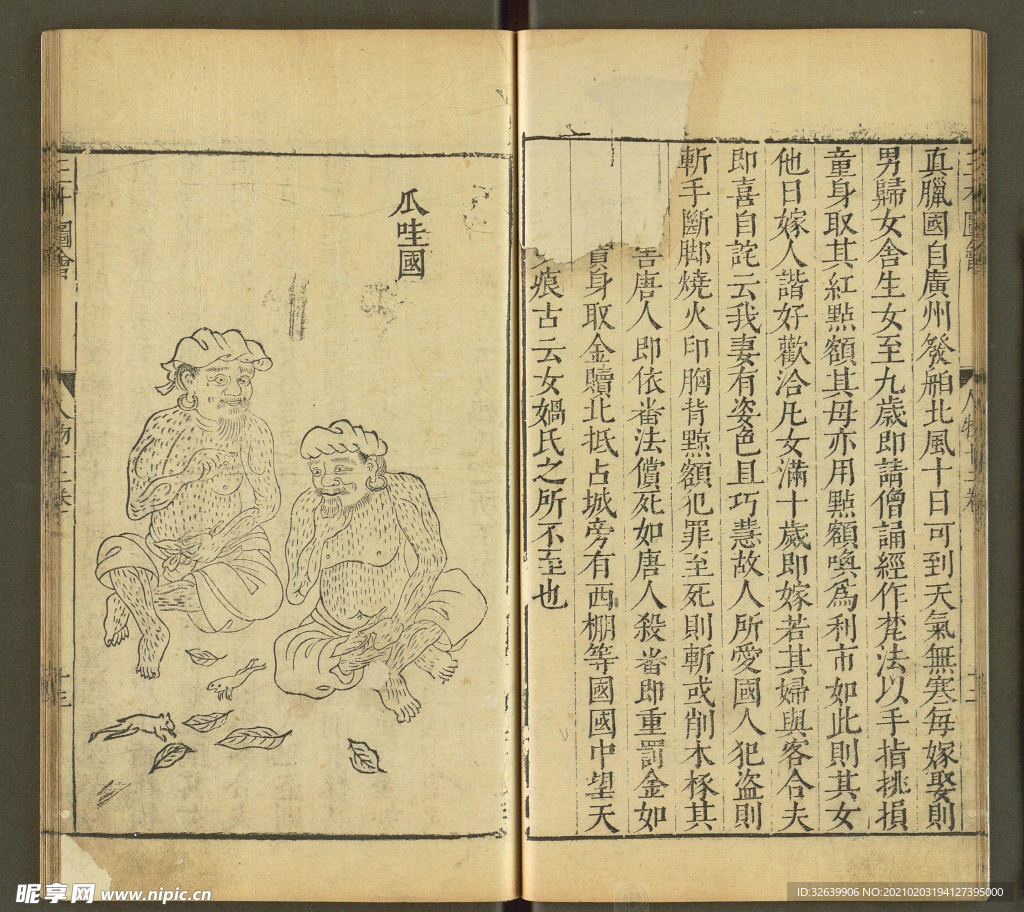 真臘國自廣州發舶北風十日可到天氣無寒每嫁娶則
男歸女舍生女至九歲即請僧誦經作梵法以手指挑損
童身取其紅點額其母亦用點額喚爲利市如此則其女
他日嫁人諧好歡洽凡女滿十歲即嫁若其婦與客合夫
即喜自詫云我妻有姿色且巧慧故人所愛國人犯盜則
斬手斷脚燒火印胸背黥額犯罪至死則斬或削木椓其
唐人即依畨法償死如唐人殺畨即重罰金如
身取金贖北抵占城旁有西棚等國國中望天
痕古云女媧氏之所不至也
瓜哇國
三才圖會
人物十三卷
昵享网 www.nipic.cn
ID:32639906 NO:20210203194127395000